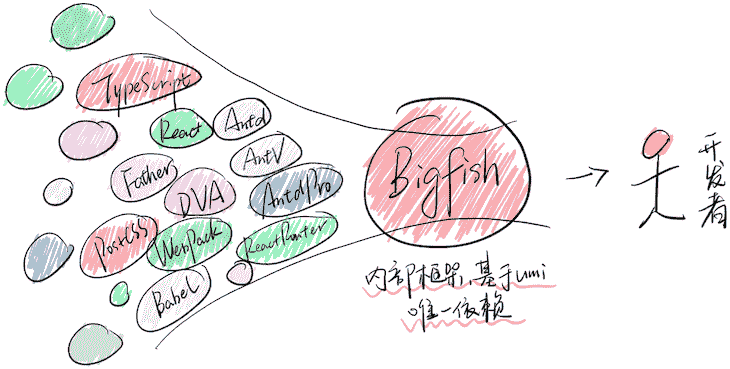 TypeScript
React
Antd
AntV
Father
DVA
AntdPro
PostCSS
WebPack
ReactRouter
Babel
Bigfish
开发者
内部框架，基于umi
唯一依赖